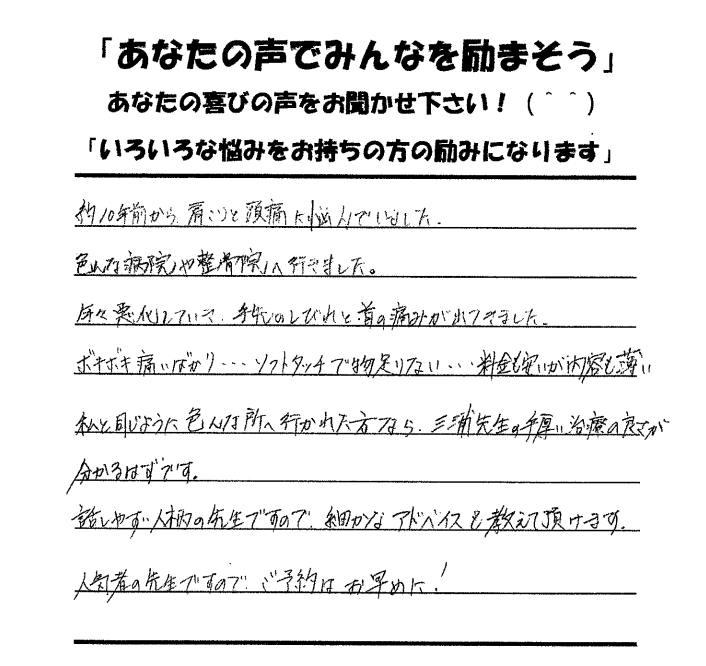 「あなたの声でみんなを励まそう」
あなたの喜びの声をお聞かせ下さい！（＾＾）
「いろいろな悩みをお持ちの方の励みになります」
約10年前から、肩こりと頭痛に悩んでいました。
色んな病院や整骨院へ行きました。
年々悪化していき、手先のしびれと首の痛みが出てきました。
ボキボキ痛いばかり・・・ソフトタッチで物足りない・・・料金も安いが内容も薄い
私と同じように色んな所へ行かれた方なら、三浦先生の手厚い治療の良さが
分かるはずです。
話しやすい人柄の先生ですので、細かなアドバイスも教えて頂けます。
人気者の先生ですので、ご予約はお早めに！